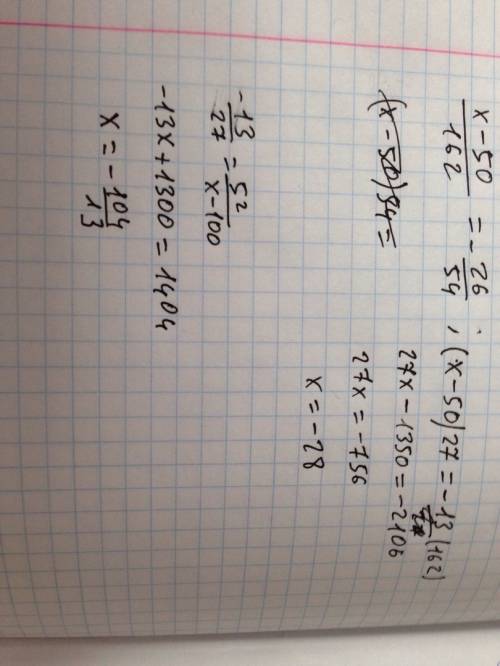 x-50/162 = -26/54 ; (x-50)27 = -13(162)
(x-50)54 =
27x - 1350 = -2106
27x = -756
x = -28
-13/27 = 52/x-100
-13x + 1300 = 1404
x = -104/13